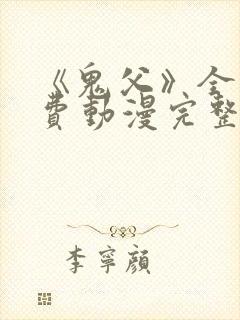 《鬼父》全
費動漫完整
李寧顏